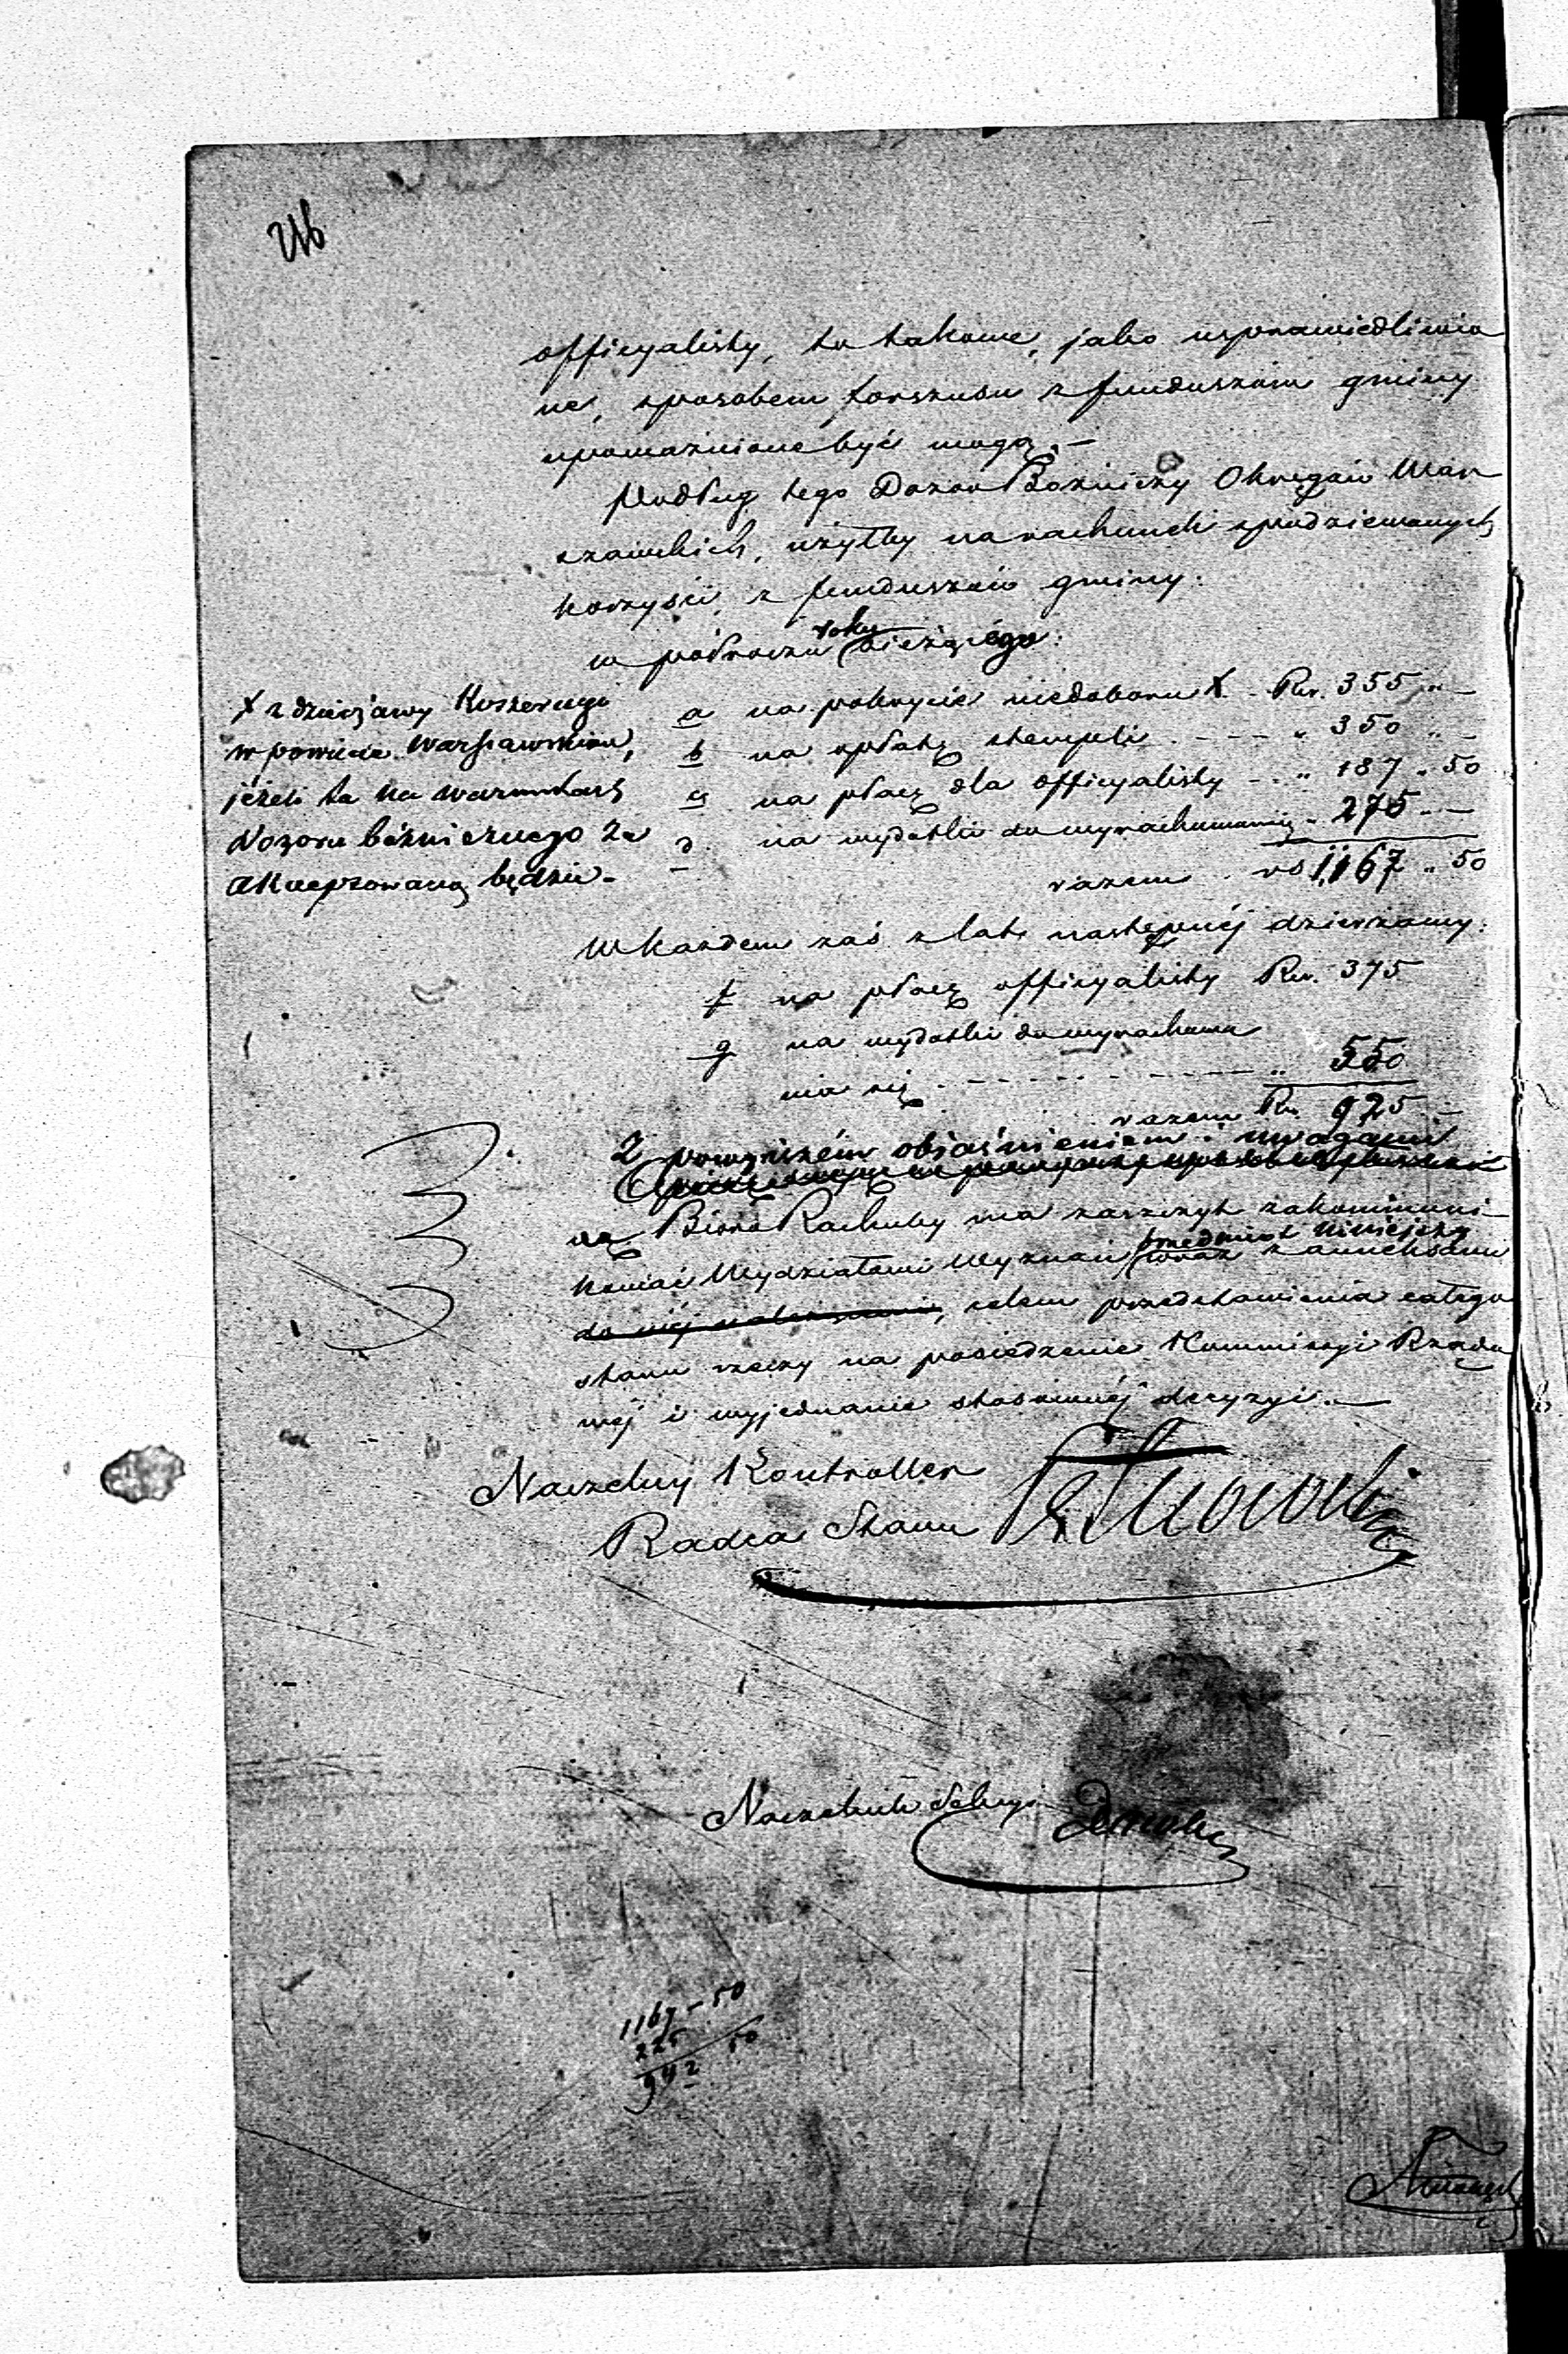 officyalisty, to takowe, jako usprawiedliwio
ne, sposobem forszusu z funduszów gminy
upoważnione być mogą.—
Podług tego Dozór Bożniczy Okręgów War
szawskich, użytby na rachunek spodziewanych
korzyści, z funduszów gminy:
w półroczu roku bieżącego:
a na pokrycie niedoboru X Rsr. 355 „ —
b na opłatę stempli . - - - „ 350 „ —
c na płacę dla officyalisty - . „ 187 „ 50
d. na wydatki do wyrachowania „ 275 „ —
razem . rs 1,167 „ 50
X z dzierżawy Koszernego
w powiecie Warszawskim,
jeżeli ta na warunkach
Dozoru bóżniczego za
akceptowaną będzie.
W każdem zaś z lat następnéj dzierżawy:
f na płacę officyalisty Rsr. 375
g na wydatki do wyrachowa
nia się - - - - - - „ 550
razem Rs. 925 —
Z powyższém objaśnieniem i uwagami
Biuro Rachuby ma zaszczyt zakommuni-
kować Wydziałowi Wyznań przedmiot niniejszy wraz z annexami
do niéj należącemi, celem przedstawienia całego
stanu rzeczy na posiedzenie Kommissyi Rządo
wéj i wyjednanie stosownéj decyzyi.—
Naczelny Kontroller
Radca Stanu
Naczelnik Sekcyi
1167 – 50
225
942 50